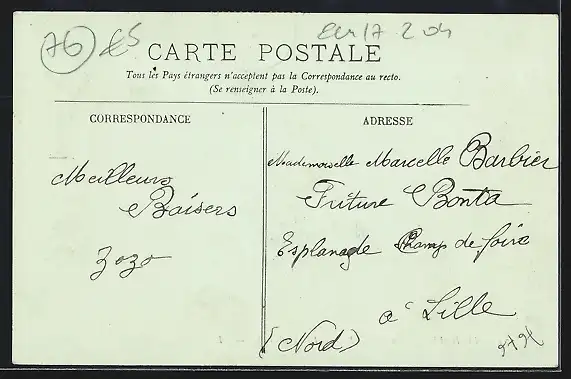 76 £5
CARTE POSTALE
Tous les Pays étrangers n'acceptent pas la Correspondance au recto.
(Se renseigner à la Poste).
CORRESPONDANCE
Meilleurs
Baisers
Zozo
ADRESSE
Mademoiselle Marcelle Barbier
Friture Bonta
Esplanade Champ de foire
à Lille
(Nord)